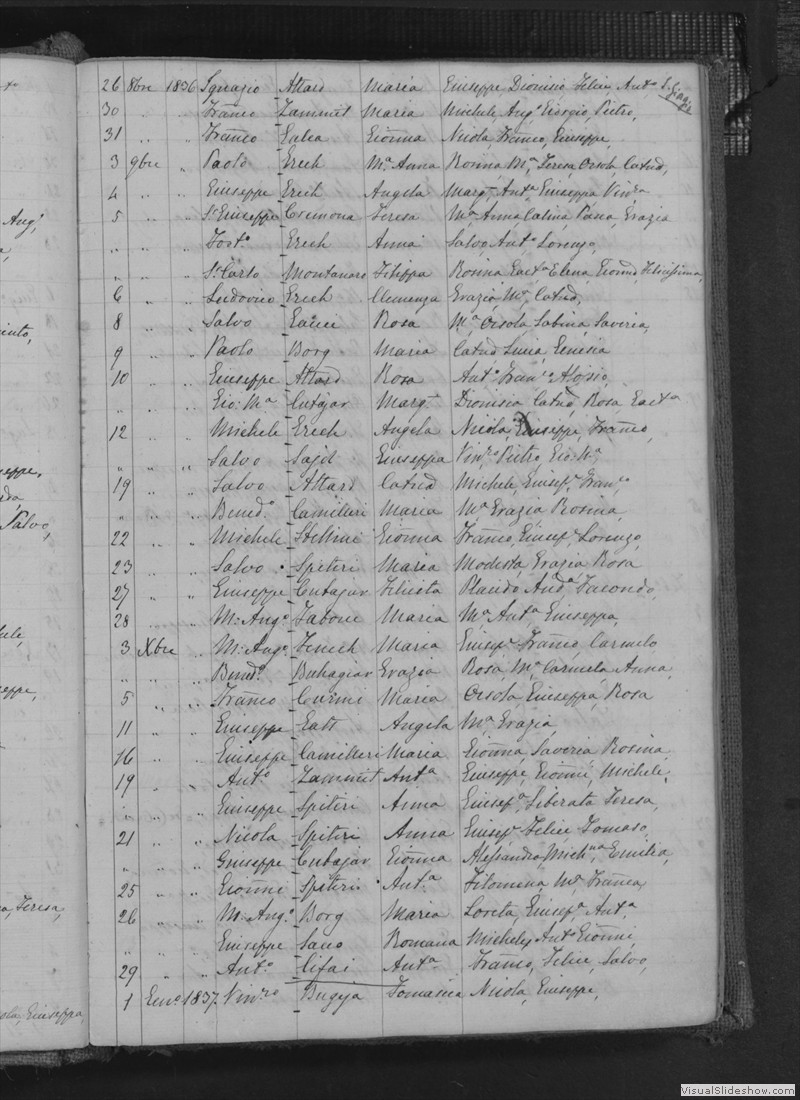 26 8bre 1836 Ignazio Attard Maria Giuseppe Dionisio Felice, Antº
30 " " Franco Zammit Maria Michele Angº Giorgio, Pietro,
31 " " Franco Galea Gionna Nicola, Franco, Giuseppe,
3 9bre " Paolo Grech Mª Anna Rosina, Mª Teresa, Orsola, Catnd,
4 " " Giuseppe Grech Angela Margª Antª Giuseppa Vinra
5 " " Giuseppe Cremona Teresa Mª Anna Catina, Grazia
" " " Fortº Grech Anna Salvo, Antº Lorenzo,
" " Carlo Montanaro Filippa Rosina Gaetª Elena, Gionna, Felicissima,
6 " " Ludovico Grech Clemenza Grazia, Mª, Catnd,
8 " " Salvo Gauci Rosa Mª Orsola, Sabina, Saveria,
9 " " Paolo Borg Maria Catnd Lucia,
10 " " Giuseppe Attard Rosa Antº Francº Aloisio,
" " " Gio: Mª Cutajar Margª Dionisia, Catnd, Rosa, Gaetª
12 " " Michele Grech Angela Nicola, Giuseppe, Franco,
" " " Salvo Sajd Giuseppa Vinro Pietro, Gio: Mª
19 " " Salvo Attard Catnd Michele, Giusepº Franco
" " " Benedº Camilleri Maria Mª Grazia Rosina,
22 " " Michele Stellini Gionna Franco, Giusepº Lorenzo,
23 " " Salvo Spiteri Maria Modesta, Grazia Rosa
27 " " Giuseppe Cutajar Felicita Placido Andª
28 " " M: Angº Zabone Maria Mª Antª Giuseppa,
3 Xbre " M: Angº Fenech Maria Giusepº Franco, Carmelo
" " " Benedº Buhagiar Grazia Rosa, Mª Carmela, Anna,
5 " " Franco Curmi Maria Orsola, Giuseppa, Rosa
11 " " Giuseppe Gatt Angela Mª Grazia
16 " " Giuseppe Camilleri Maria Gionna, Saveria Rosina,
19 " " Antº Zammit Antª Giuseppe Gionni, Michele,
" " " Giuseppe Spiteri Anna Giusepª Liberata Teresa,
21 " " Nicola Spiteri Anna Giusepº Felice Tomaso,
" " " Giuseppe Cutajar Gionna Alessandra, Michna, Emilia,
25 " " Gionni Spiteri Antª Filomena, Mª Franca,
26 " " M: Angº Borg Maria Loreta, Giusepª, Antª
" " " Giuseppe Romana Michele, Antº Gionni,
29 " " Antº Cifai Antª Franco, Felice, Salvo,
1 Genº 1837 Vinro Bugeja Tomasica Nicola, Giuseppe,
VisualSlideshow.com